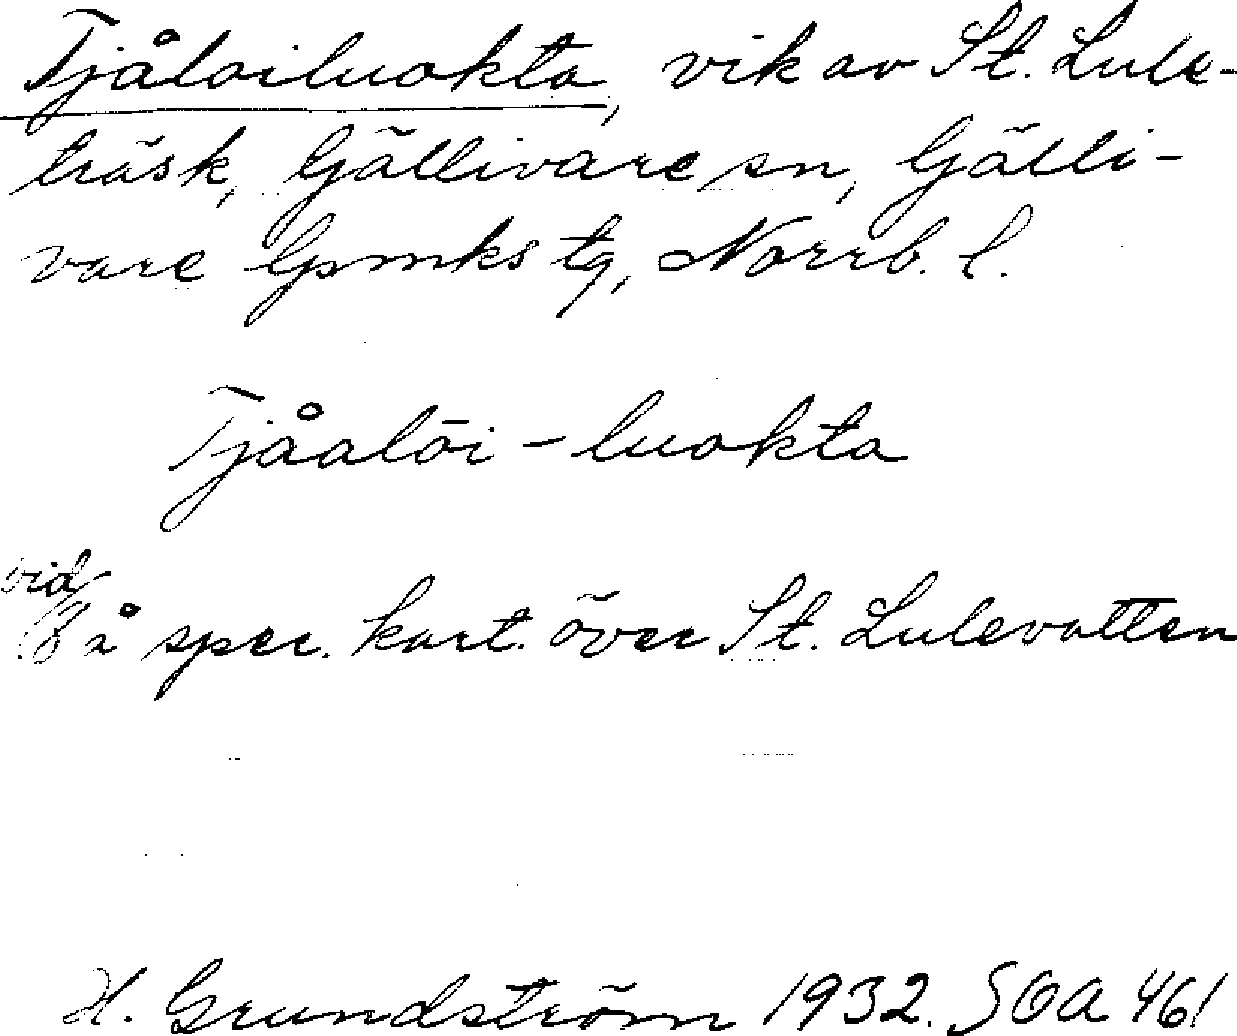 Tjåloiluokta, vik av St. Lule-
träsk, Gällivare sn, Gälli-
vare lpmks tg, Norrb. l.
Tjåalōi-luokta
vid
å spec. kart. över St. Lulevatten
H. Grundström 1932. SOA 461